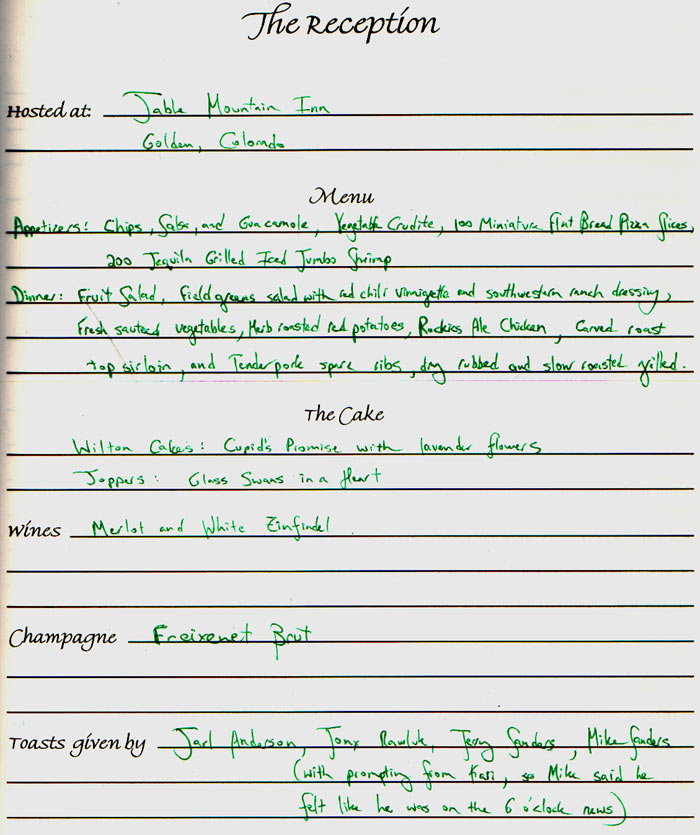 The Reception
Hosted at: Table Mountain Inn
Golden, Colorado
Menu
Appetizers: Chips, Salsa, and Guacamole, Vegetable Crudite, 100 Miniature Flat Bread Pizza Slices,
200 Tequila Grilled Iced Jumbo Shrimp
Dinner: Fruit Salad, Field greens salad with red chili vinaigette and southwestern ranch dressing,
Fresh sauteed vegetables, Herb roasted red potatoes, Rockies Ale Chicken, Carved roast
top sirloin, and Tender pork spare ribs, dry rubbed and slow roasted grilled.
The Cake
Wilton Cakes: Cupid's Promise with lavender flowers
Toppers: Glass Swans in a Heart
Wines Merlot and White Zinfindel
Champagne Freixenet Brut
Toasts given by Jarl Anderson, Rawluk, Terry Sanders, Mike Sanders
(with prompting from Kari, so Mike said he
felt like he was on the 6 o'clock news)